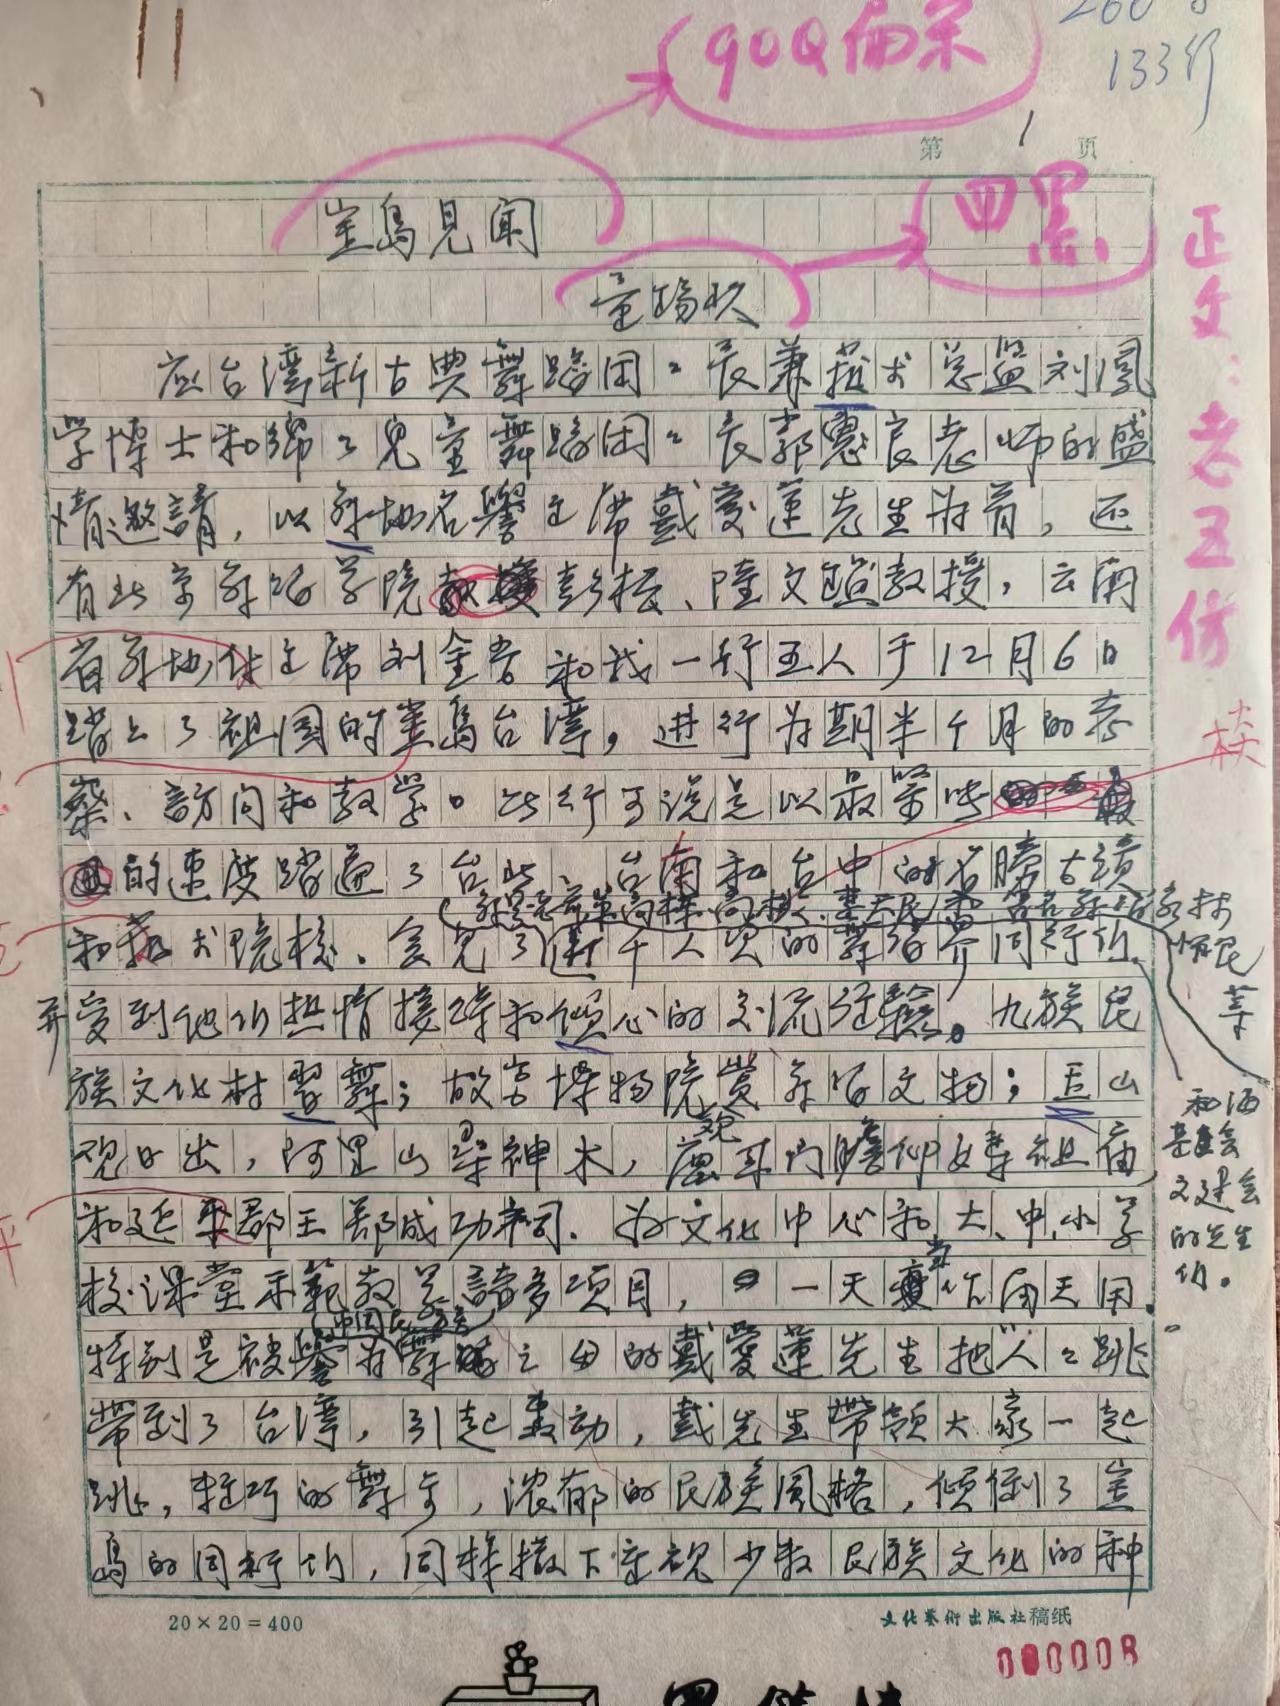 133行
第 1 页
宝島見闻
四黑
正文：老五仿
应台湾新古典舞蹈团团长兼艺术总监刘凤
学博士和兒童舞蹈团团长郭惠良老师的盛
情邀請，以舞协名譽主席戴爱莲先生为首，还
有北京舞蹈学院彭松、陸文鑑教授，云南
省舞协付主席刘金吾和我一行五人于12月6日
踏上了祖国的宝島台湾，进行为期半个月的考
察、訪问和教学。此行可说是以最緊
的速度踏遍了台北、台南和台中的名勝古蹟
和艺术院校、会见了近千人次的舞蹈界同行们、
并受到他们热情接待和倾心的交流经驗。九族民
族文化村習舞；故宫博物院赏舞蹈文物；玉山
观日出，阿里山尋神木，鹿耳门瞻仰妈祖庙
和延平郡王郑成功祠、为文化中心和大、中、小学
校课堂示範教学諸多项目，一天当作两天用。
特别是被譽为中国民族舞蹈之母的戴愛蓮先生把“人人跳”
带到了台湾，引起轰动，戴先生带领大家一起
跳，轻巧的舞步，浓郁的民族風格，倾倒了宝
島的同行们，同样撒下重视少数民族文化的种
和洒
基金会
文建会
的先生
们。
20×20=400
文化藝術出版社稿纸
000008